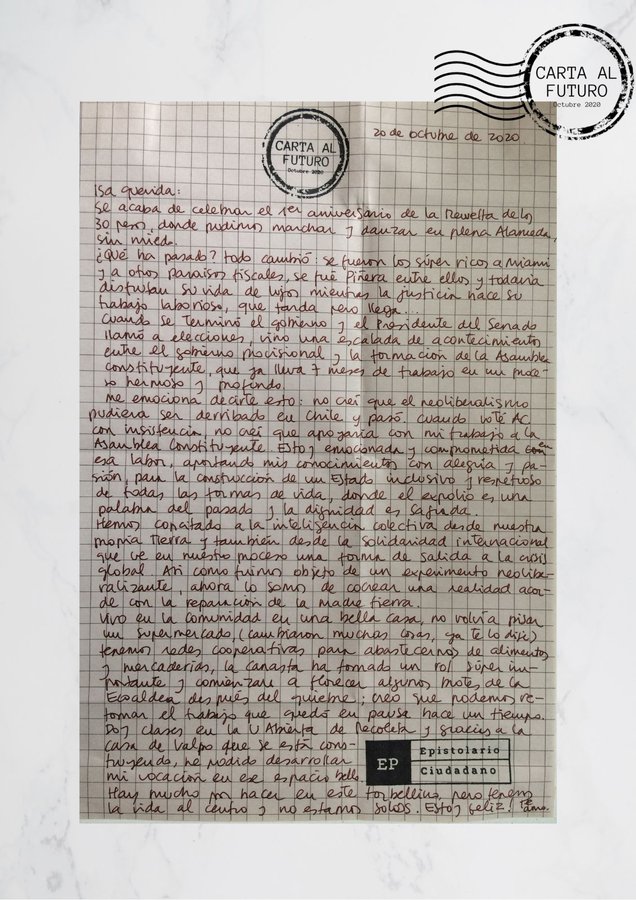 CARTA AL
FUTURO
Octubre 2020
CARTA AL
FUTURO
Octubre 2020
20 de octubre de 2020
Isa querida:
Se acaba de celebrar el 1er aniversario de la Revuelta de los
30 pesos, donde pudimos marchar y danzar en plena Alameda,
sin miedo.
¿Qué ha pasado? todo cambió: se fueron los súper ricos a Miami
y a otros paraísos fiscales, se fue Piñera entre ellos y todavía
disfrutan su vida de lujos mientras la justicia hace su
trabajo laborioso, que tarda pero llega...
Cuando se terminó el gobierno y el Presidente del Senado
llamó a elecciones, vino una escalada de acontecimiento
entre el gobierno provisional y la formación de la Asamblea
Constituyente, que ya lleva 7 meses de trabajo en un proce-
so hermoso y profundo.
Me emociona decirte esto: no creí que el neoliberalismo
pudiera ser derribado en Chile y pasó. Cuando voté AC
con insistencia no creí que apoyaría con mi trabajo a la
Asamblea Constituyente. Estoy emocionada y comprometida con en
esa labor, aportando mis conocimientos con alegría y pa-
sión, para la construcción de un Estado inclusivo y respetuoso
de todas las formas de vida, donde el expolio es una
palabra del pasado y la dignidad es sagrada.
Hemos concitado a la inteligencia colectiva desde nuestra
propia tierra y también desde la solidaridad internacional
que ve en nuestro proceso una forma de salida a la crisis
global. Así como fuimos objeto de un experimento neolibe-
ralizante, ahora lo somos de cocrear una realidad acor-
de con la reparación de la madre tierra.
Vivo en la comunidad en una bella casa, no volvía a pisar
un supermercado, (cambiaron muchas cosas, ya te lo dije)
tenemos redes cooperativas para abastecernos de alimentos
y mercaderías, la canasta ha tomado un rol súper im-
portante y comienzan a florecer algunos brotes de la
después del quiebre; creo que podemos re-
tomar el trabajo que quedó en pausa hace un tiempo.
Doy clases en la U Abierta de Recoleta y gracias a la
casa de Valpo que se está cons-
truyendo, he podido desarrollar
mi vocación en ese espacio bello.
EP
Epistolario
Ciudadano
Hay mucho por hacer en este torbellino, pero tenemos
la vida al centro y no estamos solos. Estoy feliz! Te
amo.